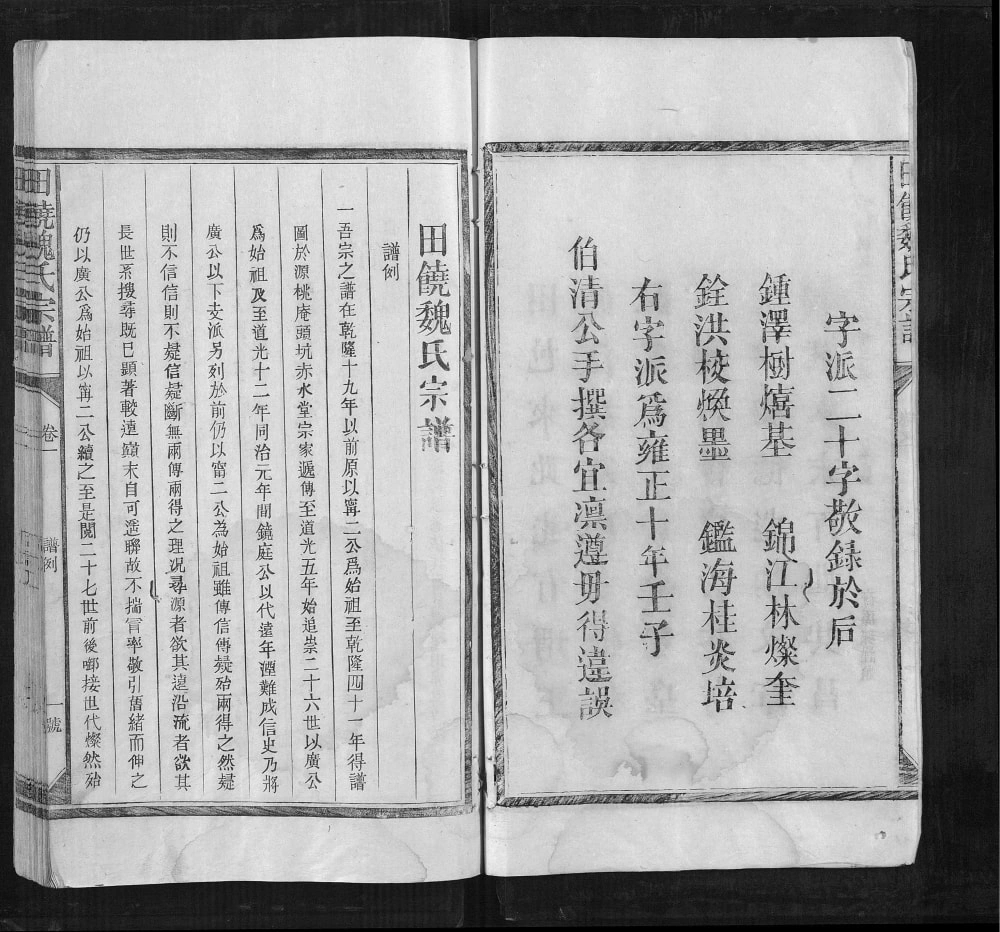 字派二十字敬録於后
鍾澤樹熺基　錦江林燦奎
銓洪校煥墨　鑑海桂炎培
右字派爲雍正十年壬子
伯清公手撰各宜凛遵毋得違誤
田饒魏氏宗譜
譜例
一吾宗之譜在乾隆十九年以前原以寗二公爲始祖至乾隆四十一年得譜
圖於源桃庵頭坑赤水堂宗家遞傳至道光五年始追崇二十六世以廣公
爲始祖及至道光十二年同治元年間鏡庭公以代遠年湮難成信史乃將
廣公以下支派另列於前仍以寗二公為始祖雖傳信傳疑殆兩得之然疑
則不信信則不疑信疑斷無兩傳兩得之理况尋源者欲其遠沿流者欲其
長世系搜尋既已顯著較遠顚末自可遥聯故不揣冒率敬引舊緒而伸之
仍以廣公爲始祖以寗二公續之至是閲二十七世前後啣接世代燦然殆
田饒魏氏宗譜
卷一
譜例
一號